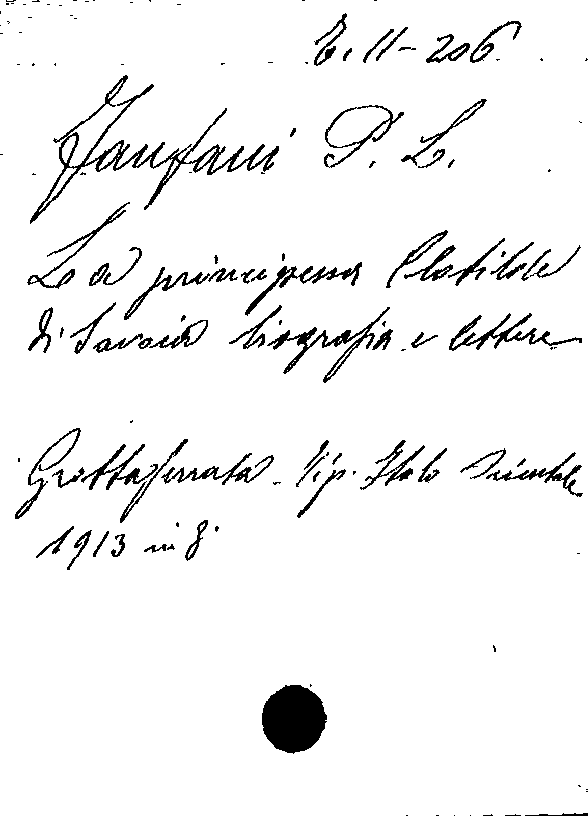 E. II - 206
Fanfani P. L.
La principessa Clotilde
di Savoia biografia e lettere
Grottaferrata - Tip. Italo Orientale
1913 in 8.